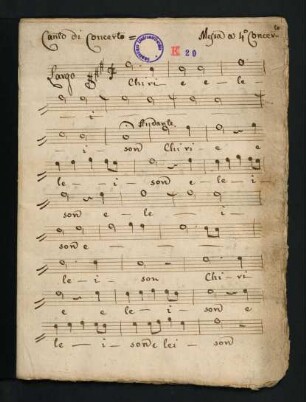 Canto di Concerto = Messa a 4.º Concert.to
K 20
Largo
Chi ri - e e le -
- i -
Andante
i son Chi ri e e
le - i - son e le - i
son e - le - - i
son e - - - -
le - i - son Chi - ri
e e le - i - son e
le - i - son e lei - son